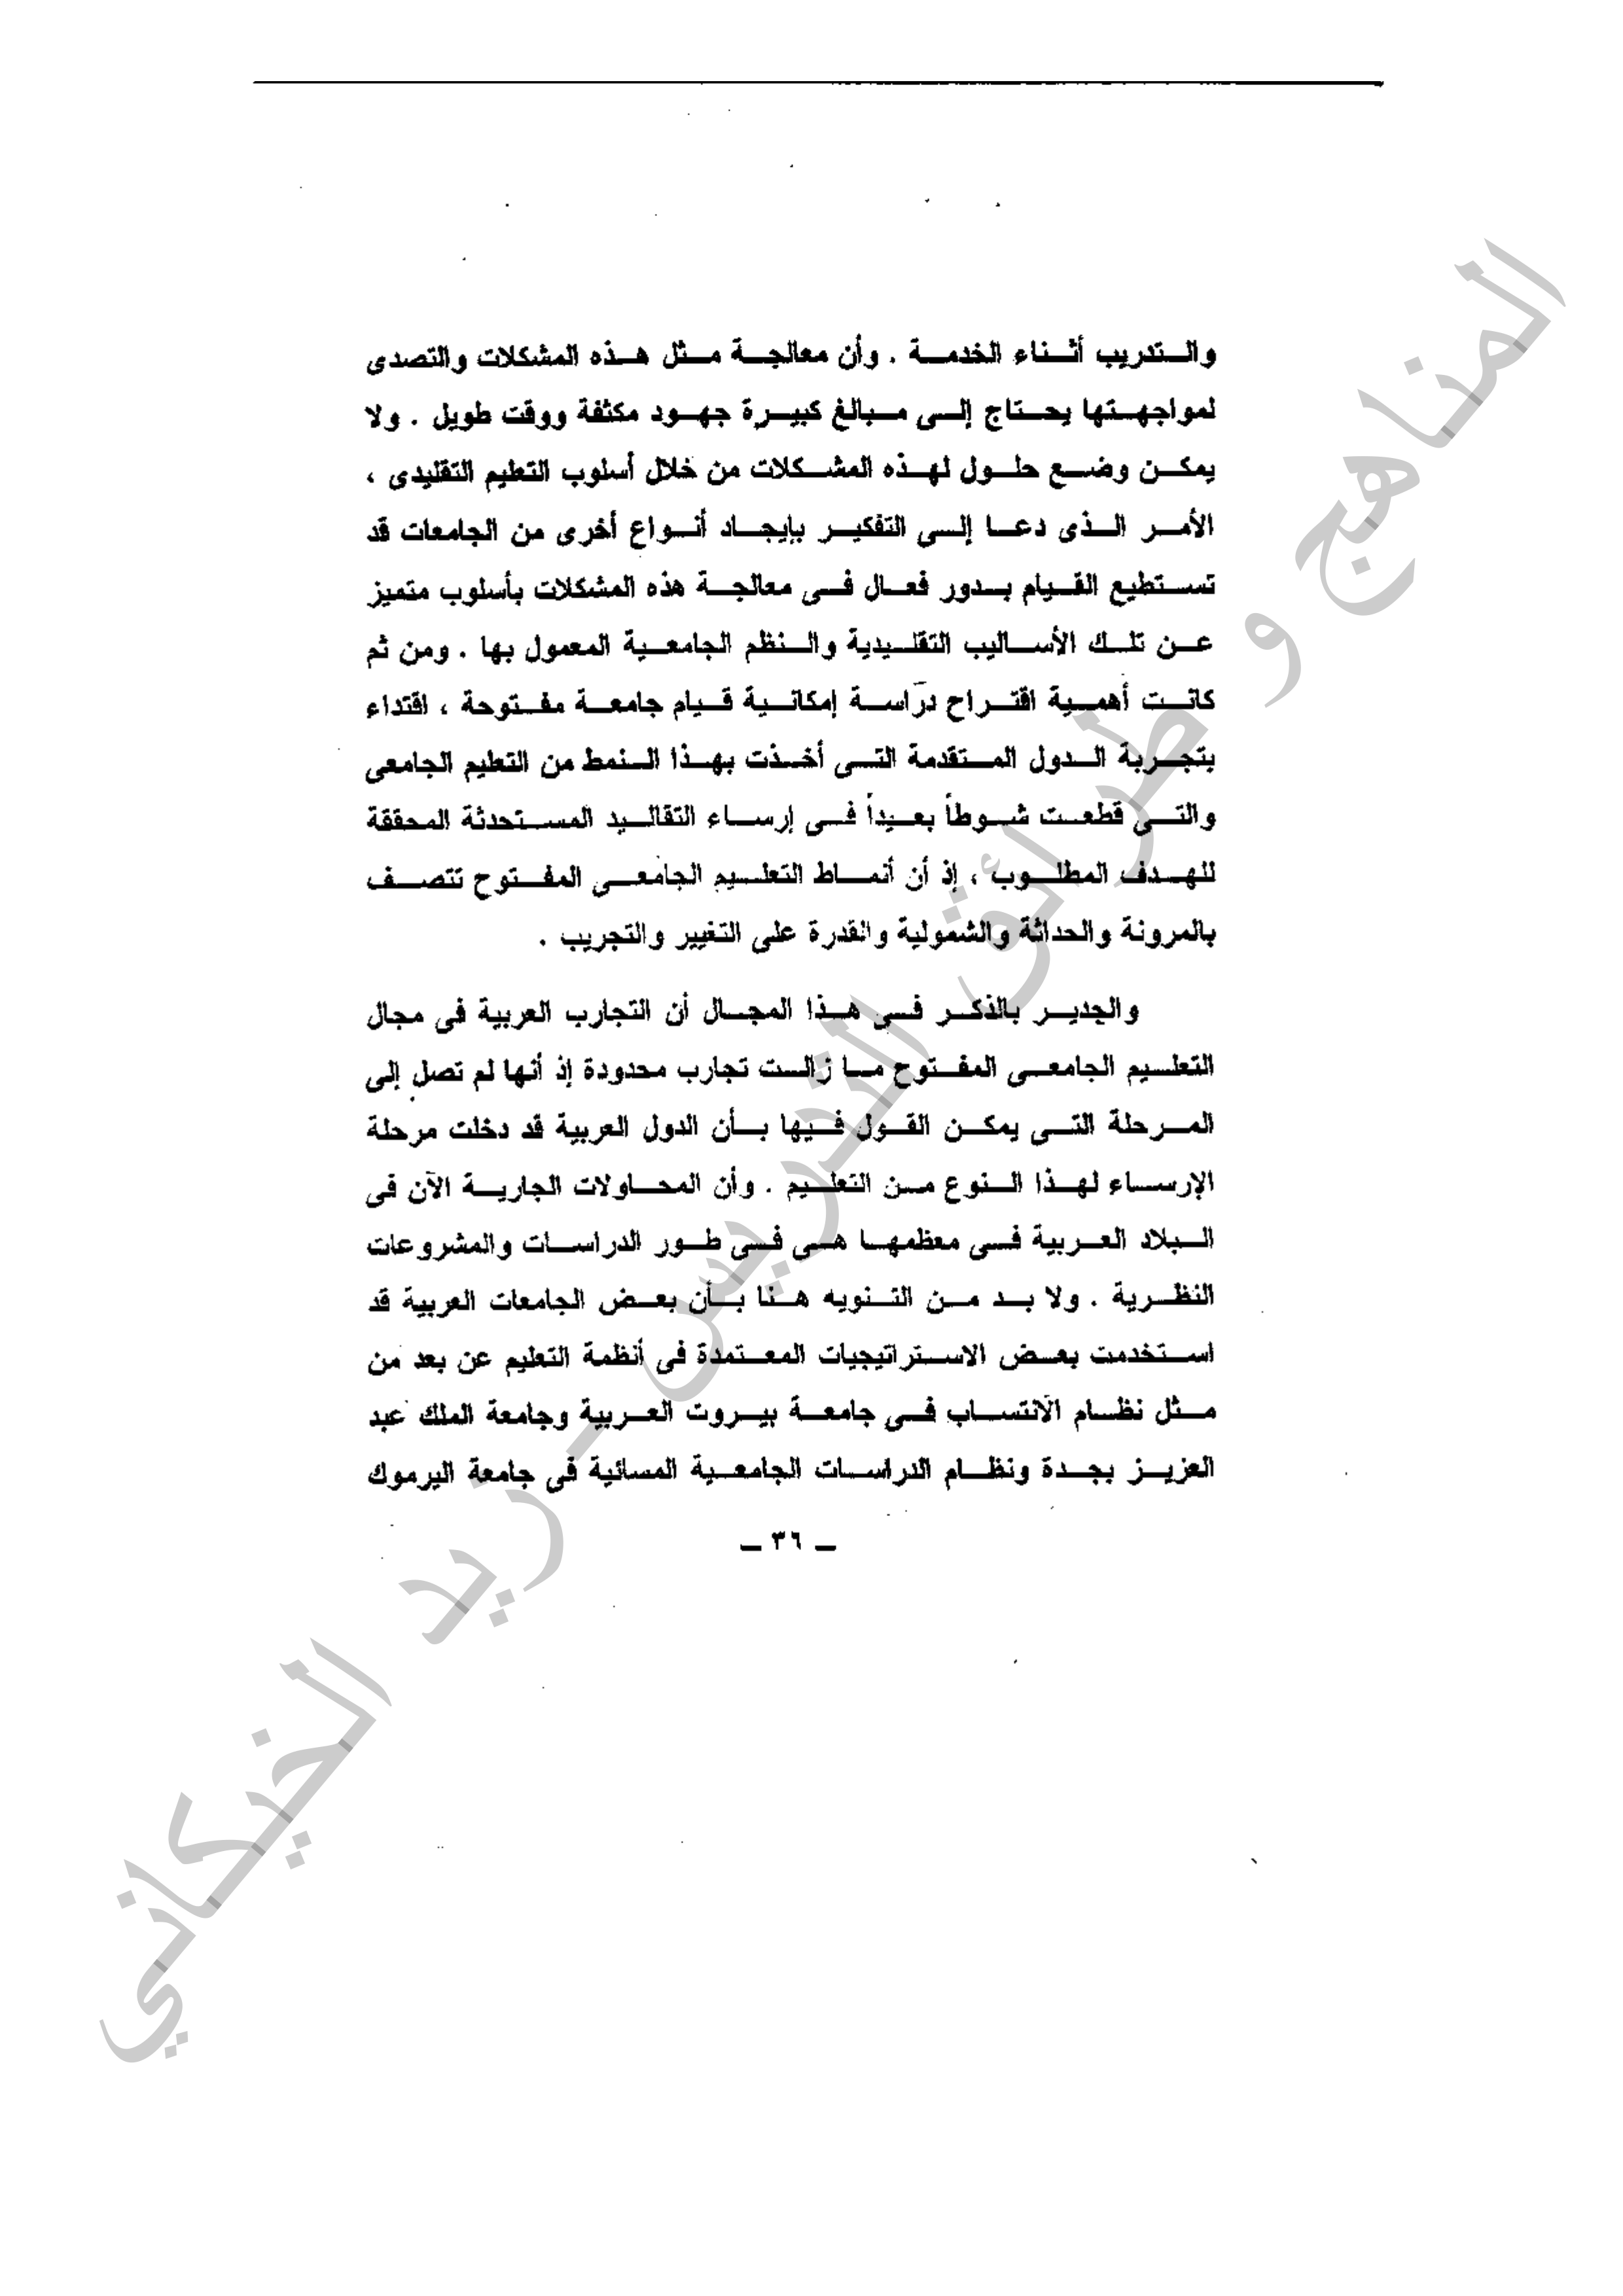 والتدريب أثناء الخدمة . وأن معالجة مثل هذه المشكلات والتصدى
لمواجهتها يحتاج إلى مبالغ كبيرة جهود مكثفة ووقت طويل . ولا
يمكن وضع حلول لهذه المشكلات من خلال أسلوب التعليم التقليدى ،
الأمر الذى دعا إلى التفكير بإيجاد أنواع أخرى من الجامعات قد
تستطيع القيام بدور فعال فى معالجة هذه المشكلات بأسلوب متميز
عن تلك الأساليب التقليدية والنظم الجامعية المعمول بها . ومن ثم
كانت أهمية اقتراح دراسة إمكانية قيام جامعة مفتوحة ، اقتداء
بتجربة الدول المتقدمة التى أخذت بهذا النمط من التعليم الجامعى
والتى قطعت شوطاً بعيداً فى إرساء التقاليد المستحدثة المحققة
للهدف المطلوب ، إذ أن أنماط التعليم الجامعى المفتوح تتصف
بالمرونة والحداثة والشمولية والقدرة على التغيير والتجريب .
والجدير بالذكر فى هذا المجال أن التجارب العربية فى مجال
التعليم الجامعى المفتوح ما زالت تجارب محدودة إذ أنها لم تصل إلى
المرحلة التى يمكن القول فيها بأن الدول العربية قد دخلت مرحلة
الإرساء لهذا النوع من التعليم . وأن المحاولات الجارية الآن فى
البلاد العربية فى معظمها هى فى طور الدراسات والمشروعات
النظرية . ولا بد من التنويه هنا بأن بعض الجامعات العربية قد
استخدمت بعض الاستراتيجيات المعتمدة فى أنظمة التعليم عن بعد من
مثل نظام الانتساب فى جامعة بيروت العربية وجامعة الملك عبد
العزيز بجدة ونظام الدراسات الجامعية المسائية فى جامعة اليرموك
ـ ٣٦ ـ
المناهج و طرائق التدريس - زيد الخيكاني